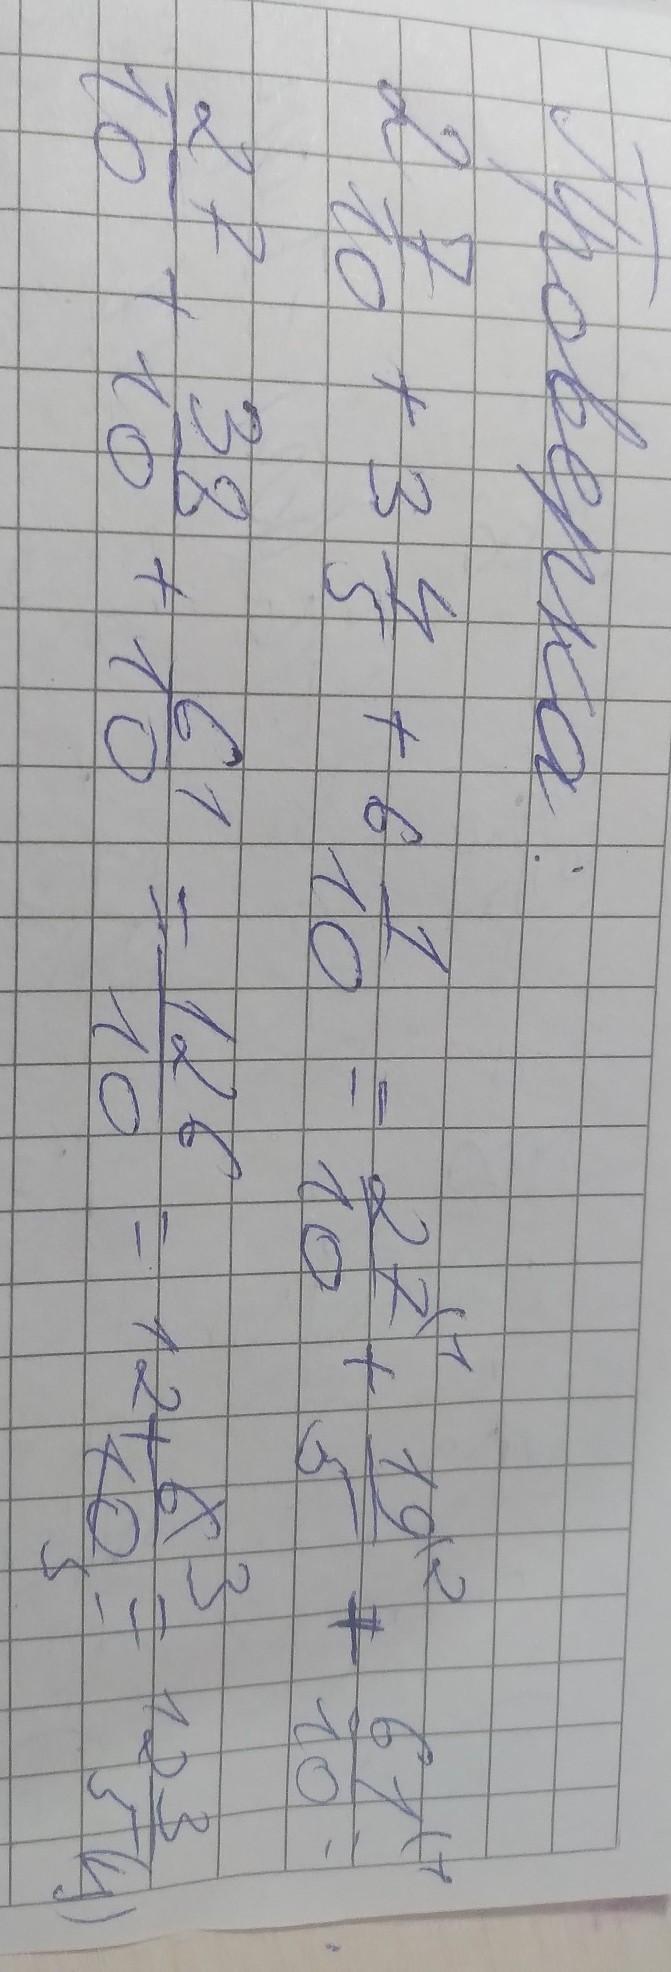 Проверка:
2 7/10 + 3 4/5 + 6 1/10 = 27/10 (1 + 19/5 (2 + 61/10 (1 =
27/10 + 38/10 + 61/10 = 126/10 = 12 6/10 3/5 = 12 3/5 (ч)